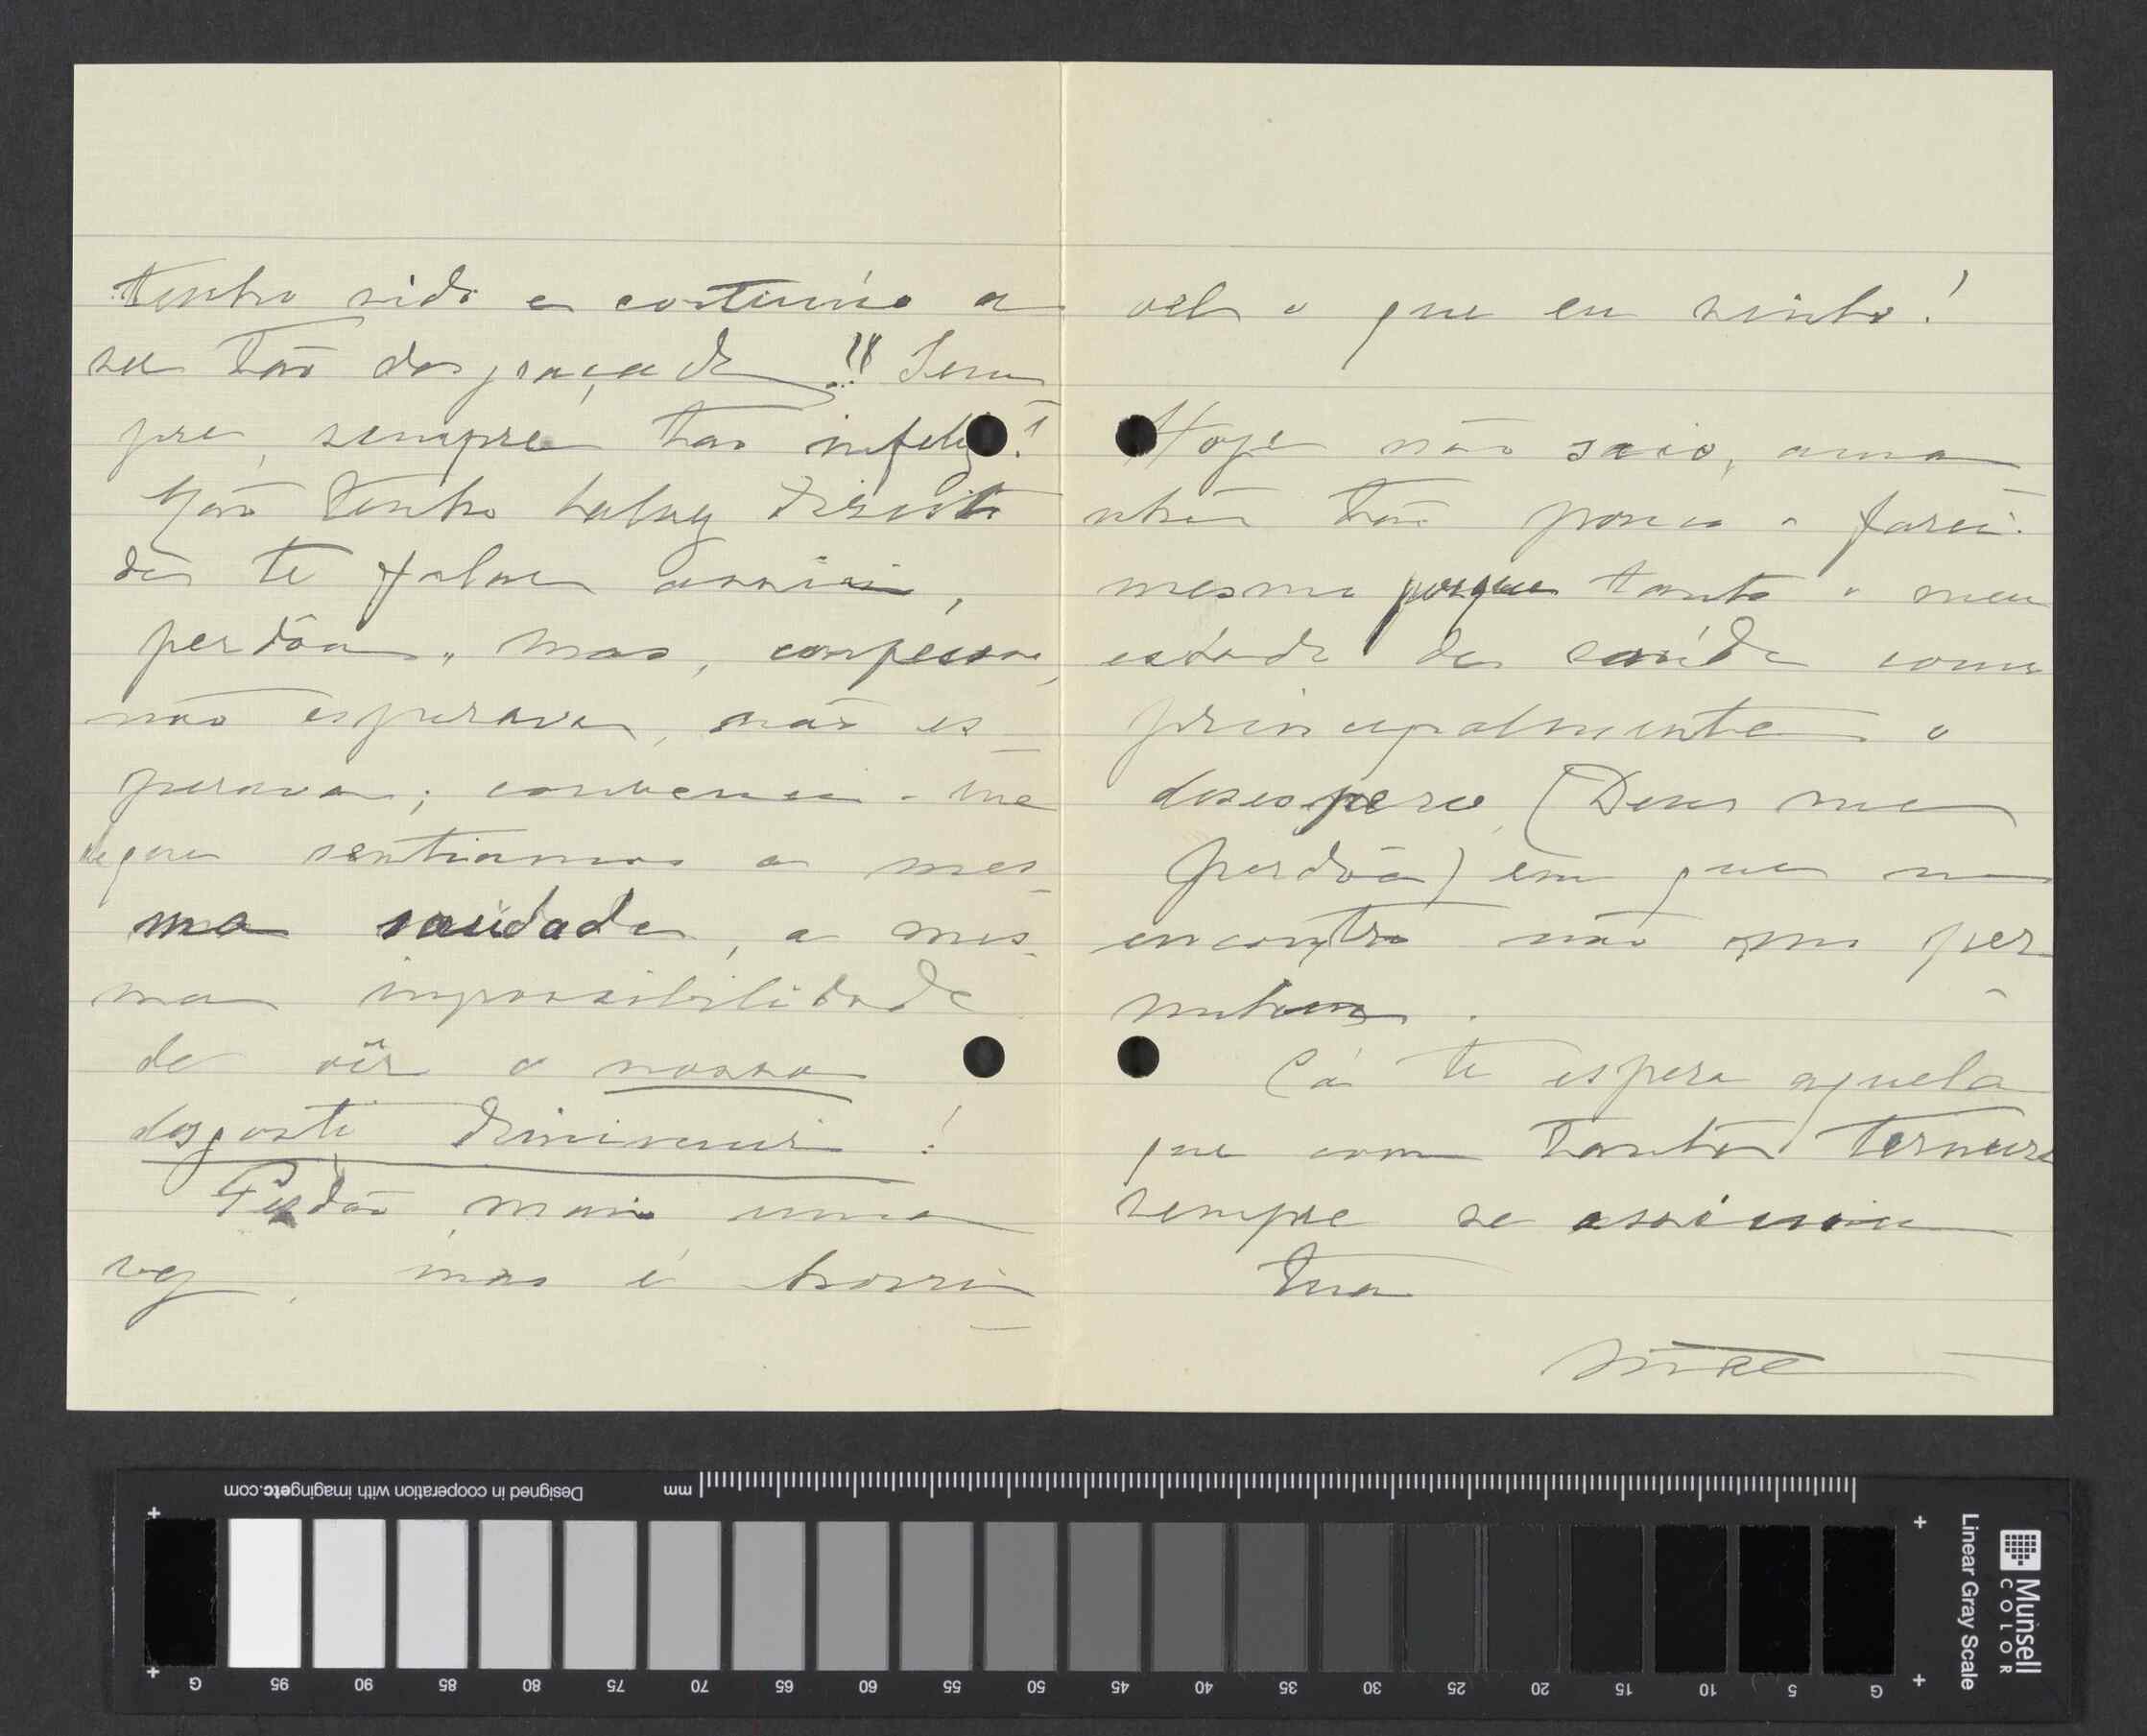 tenho sido e continúo a
ser tão desgraçada!!! Sem
pre, sempre tão infeliz!
Não tenho talvez direito
de te falar assim,
perdôa, mas, confesso,
não esperava, não es-
perava; convenci-me
que sentiamos a mes-
ma saudade, a mes-
ma impossibilidade
de vêr o nosso
desgosto diminuir!
Perdão mais uma
vez, mas é horri-
vel o que eu sinto!
Hoje não saio, ama-
nhã tão pouco o farei
mesmo porque tanto o meu
estado de saúde como
principalmente o
desespero, (Deus me
perdôa) em que me
encontro não m'o per-
mitem.
Cá te espera aquela
que com tanta ternura
sempre se assinou
tua
Designed in cooperation with imagingetc.com
mm
Munsell
COLOR
Linear Gray Scale
G 95 90 85 80 75 70 65 60 55 50 45 40 35 30 25 20 15 10 5 G